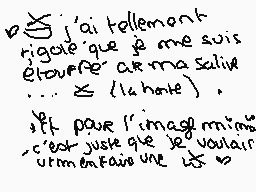 j'ai tellement
rigolé que je me suis
étouffé ak ma salive
.... (la honte).
Et pour l'image mimi
c'est juste que je voulais
une